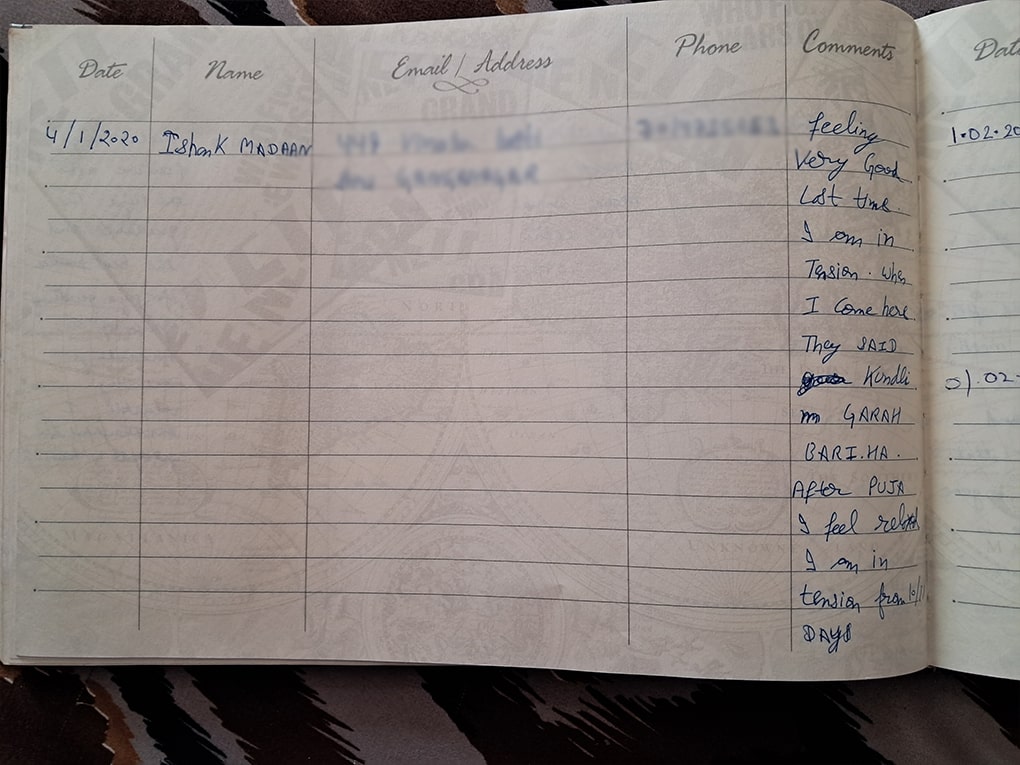 Date Name Email / Address Phone Comments
4/1/2020 IShanK MADAAN feeling
Very Good
Last time.
I am in
Tension. when
I Come here.
They SAID
Kundli
GARAH
BARI.HA.
After PUJA
I feel
I am in
tension from 10/11
DAYS
Date
1.02.20
01.02-